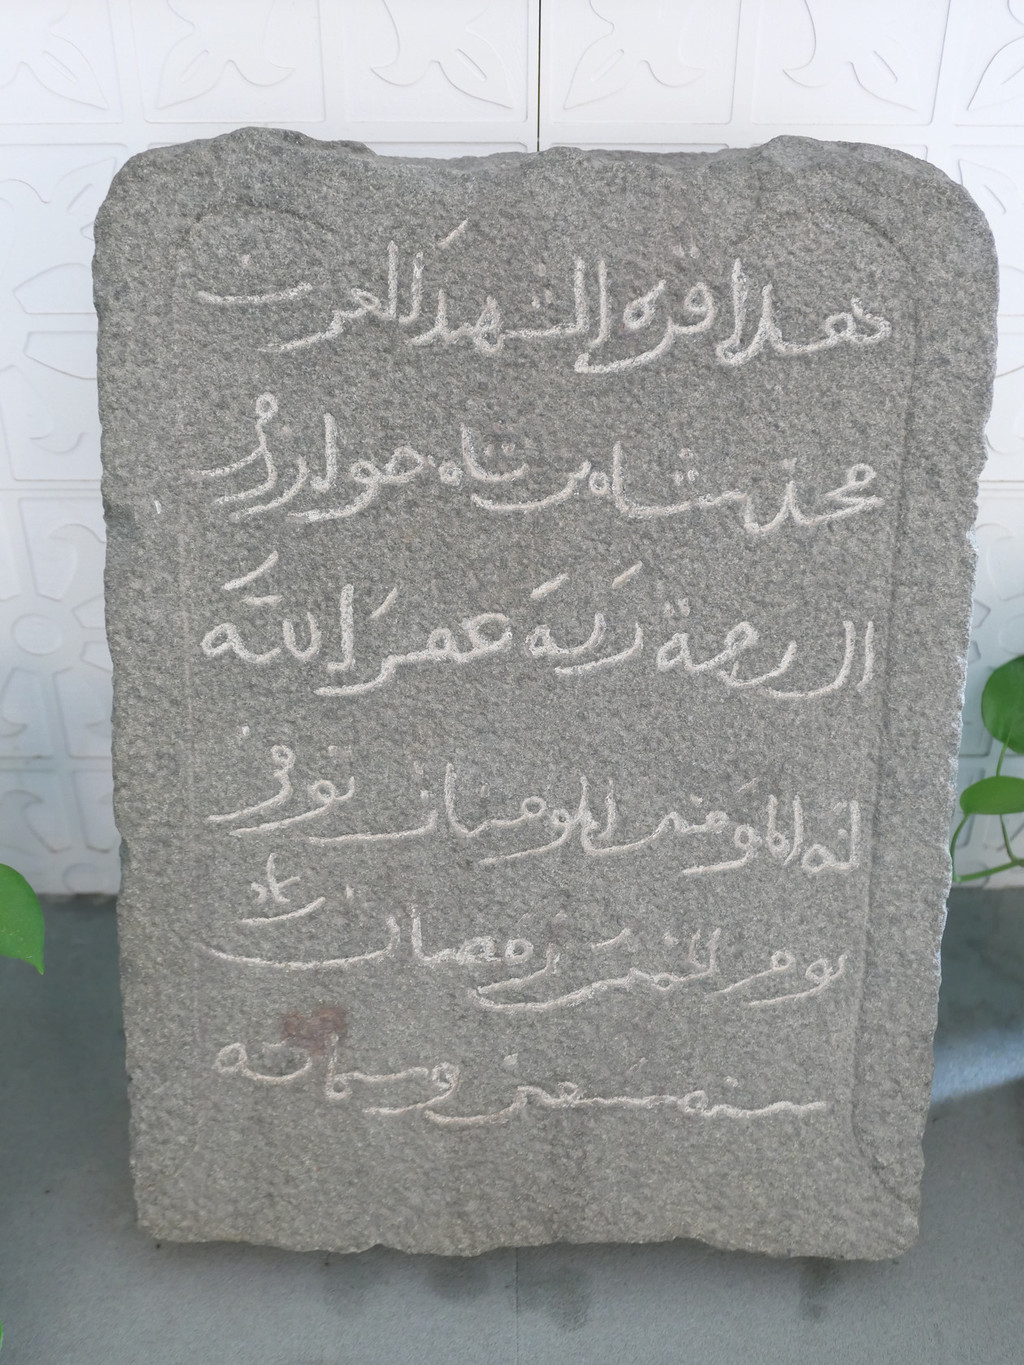 هذا قبره الشهيد الغريب
محمد شاه بن شاه خوارزمي
الى رحمة ربه غفر الله
له المومنين المومنات توفي
يوم الخميس رمضان
سنه سبعين وستمائه